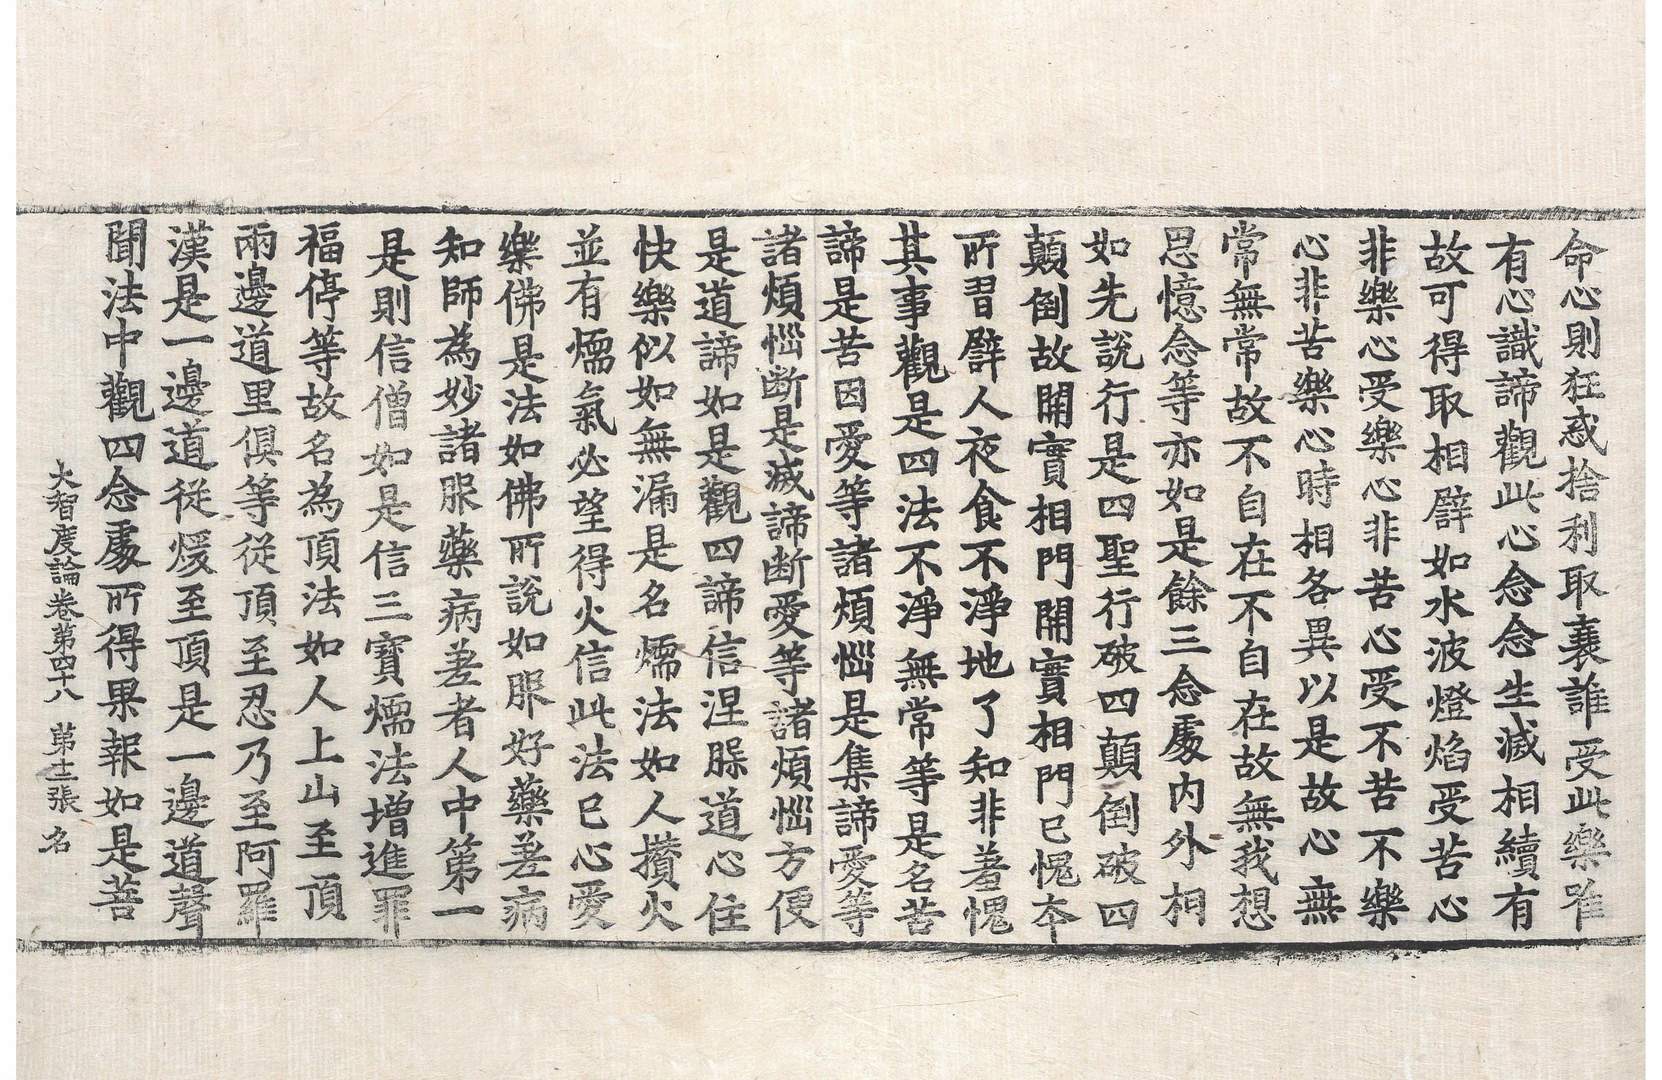 命心則狂惑捨利取衰誰受此樂唯
有心識諦觀此心念念生滅相續有
故可得取相譬如水波燈焰受苦心
非樂心受樂心非苦心受不苦不樂
心非苦樂心時相各異以是故心無
常無常故不自在不自在故無我想
思憶念等亦如是餘三念處內外相
如先說行是四聖行破四顛倒破四
顛倒故開實相門開實相門已愧本
所習譬人夜食不淨地了知非羞愧
其事觀是四法不淨無常等是名苦
諦是苦因愛等諸煩惱是集諦愛等
諸煩惱斷是滅諦斷愛等諸煩惱方便
是道諦如是觀四諦信涅槃道心住
快樂似如無漏是名煗法如人攢火
並有煗氣必望得火信此法已心愛
樂佛是法如佛所說如服好藥差病
知師為妙諸服藥病差者人中第一
是則信僧如是信三寶煗法增進罪
福停等故名為頂法如人上山至頂
兩邊道里俱等從頂至忍乃至阿羅
漢是一邊道從煖至頂是一邊道聲
聞法中觀四念處所得果報如是菩
大智度論卷第四十八　第十二張　名